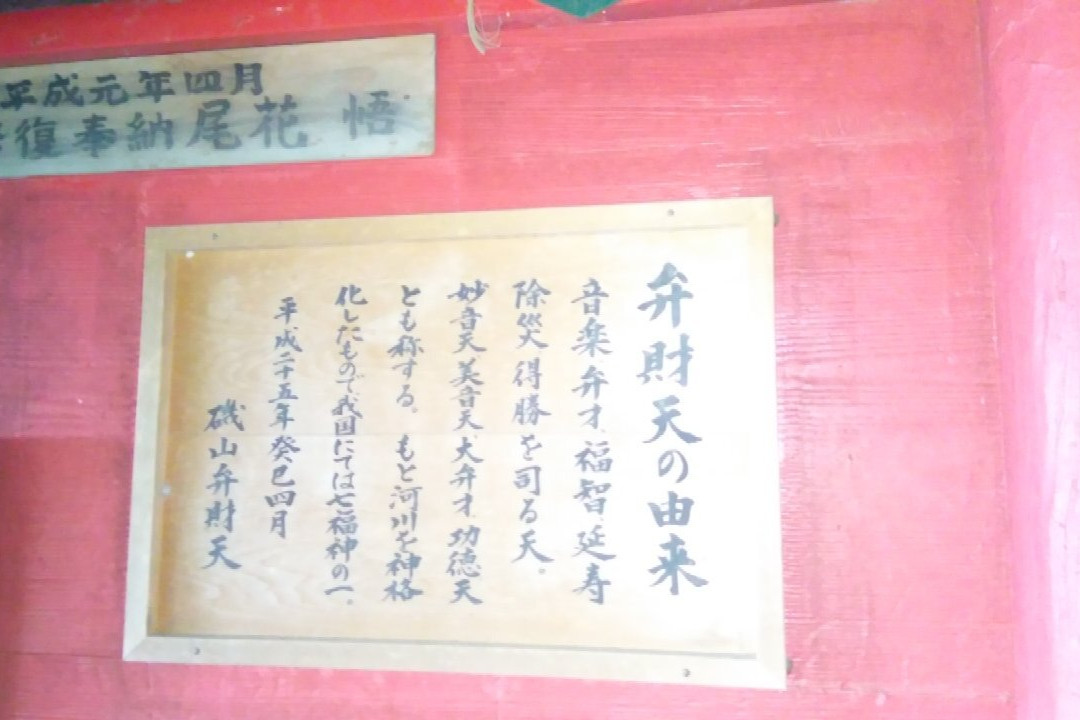 平成元年四月
復奉納尾花 悟
弁財天の由来
音楽弁才福智延寿
除災得勝を司る天。
妙音天美音天大弁才功徳天
とも称する。もと河川を神格
化したもので我国にては七福神の一。
平成二十五年癸巳四月
磯山弁財天